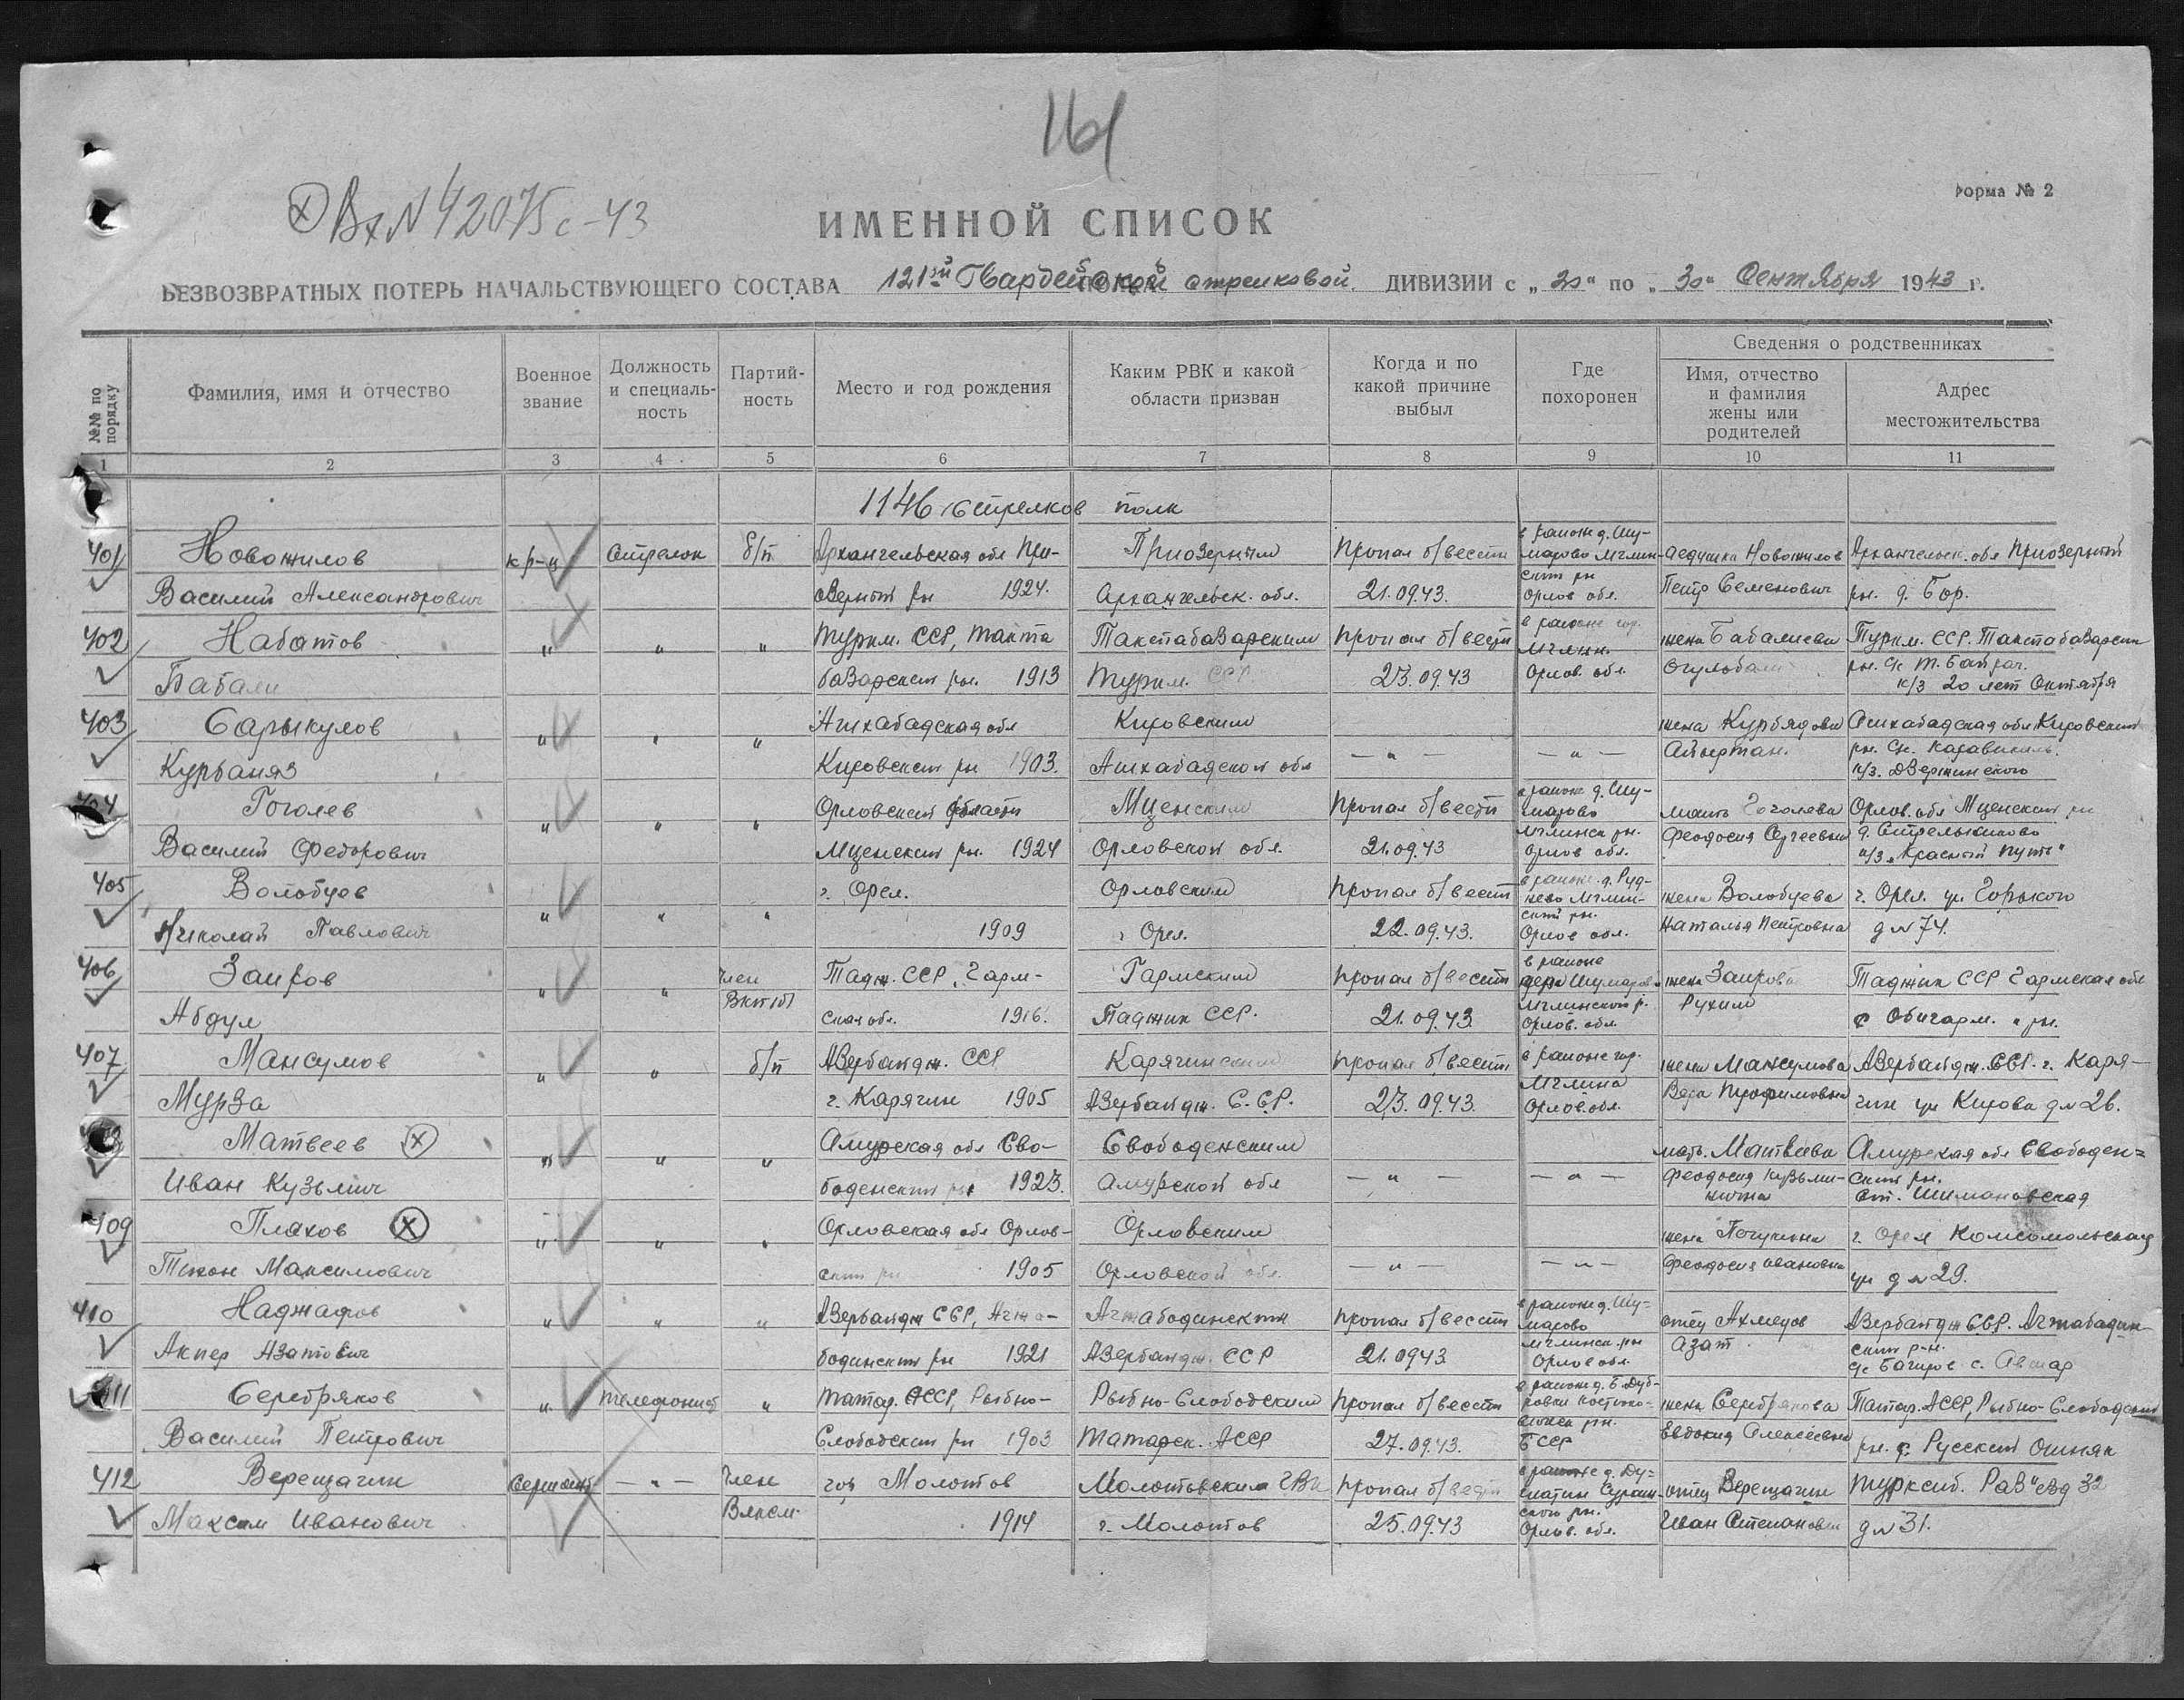 161
Вх N 42075с-43
Форма № 2
ИМЕННОЙ СПИСОК
БЕЗВОЗВРАТНЫХ ПОТЕРЬ НАЧАЛЬСТВУЮЩЕГО СОСТАВА 121ой Гвардейской стрелковой ДИВИЗИИ с „20“ по „30“ Сентября 1943 г.
№№ по порядку
Фамилия, имя и отчество
Военное звание
Должность и специальность
Партийность
Место и год рождения
Каким РВК и какой области призван
Когда и по какой причине выбыл
Где похоронен
Сведения о родственниках
Имя, отчество и фамилия жены или родителей
Адрес местожительства
1 2 3 4 5 6 7 8 9 10 11
1146 стрелков полк
401 Новожилов кр-ц Стрелок б/п Архангельская обл При- Приозерным Пропал б/вести в районе д. Шу- марово Мглин- дедушка Новожилов Архангельск. обл Приозерный
Василий Александрович озерный рн 1924. Архангельск. обл. 21.09.43. ский рн Орлов обл. Петр Семенович рн. д. Бор.
402 Набатов " " " Туркм. ССР, Тахта Тахтабазарским Пропал б/вести в районе гор. Мглин. жена Бабалиева Туркм. ССР. Тахтабазарский
Бабали базарский рн. 1913 Туркм. ССР 23.09.43 Орлов. обл. Огулбали рн. с/с Т. Байрач. к/з 20 лет Октября
403 Сарыкулов " " " Ашхабадская обл Кировским жена Курбядова Ашхабадская обл Кировский
Курбаняз Кировский рн 1903. Ашхабадской обл — " — — " — рн. к/з. Дзержинского
404 Гоголев " " " Орловский области Мценским Пропал б/вести в районе д. Шу- марово мать Гоголева Орлов. обл Мценский рн
Василий Федорович Мценский рн. 1924 Орловской обл. 21.09.43 Мглинск рн. Орлов обл. Феодосия Сергеевна д. Стрельниково к/з „Красный путь"
405 Волобуев " " " г. Орел. Орловским Пропал б/вести в районе д. Руд- нево Мглин- жена Волобуева г. Орел. ул Горького
Николай Павлович 1909 г Орел. 22.09.43. ский рн. Орлов обл. Наталья Петровна д N 74.
406 Заиров " " член ВКП(б) Тадж. ССР, Гарм- Гармским Пропал б/вести в районе дерев Шумарово жена Заирова Таджик ССР Гармская обл
Абдул ская обл. 1916. Таджик ССР. 21.09.43 Мглинского р. Орлов. обл. Рухим с Обигарм. " рн.
407 Мансумов " " б/п Азербайдж. ССР Карягинским Пропал б/вести в районе гор. жена Мансумова Азербайдж. ССР. г. Каря-
Мурза г. Карягин 1905 Азербайдж. С.СР. 23.09.43. Мглина Орлов. обл. Вера Трофимовна гин ул Кирова д N 26.
Матвеев " " " Амурская обл Сво- Свободенским мать. Матвеева Амурская обл Свободен-
Иван Кузьмич боденский рн 1923. Амурской обл — " — — " — Феодосия Кузьми- нична ский рн. ст. Шимановская
409 Плахов " " " Орловская обл Орлов- Орловским жена г. Орел Комсомольская
Тихон Максимович ский рн 1905 Орловской обл. — " — — " — Феодосия Ивановна ул д N 29.
410 Наджафов " " " Азербайдж ССР, Агжа- Агжабодинским Пропал б/вести в районе д. Шу- марово отец Ахмедов Азербайдж ССР. Агжабадин-
Акпер Азатович бодинский рн 1921 Азербайдж. ССР 21.09.43 Мглинск. рн Орлов обл. Азат ский р-н. с/с Багиров с. Авшар
411 Серебряков " телефонист " Татар. АССР, Рыбно- Рыбно-Слободским Пропал б/вести в районе д. Б. Дуб- ровка Костюко- жена Серебрякова Татар. АССР, Рыбно-Слободский
Василий Петрович Слободский рн 1903 Татарск. АССР 27.09.43. вичск рн. БССР Евдокия Алексеевна рн. с. Русский Ошняк
412 Верещагин Сержант — " — член гор Молотов Молотовским ГВК Пропал б/вести в районе д. Ду- отец Верещагин Турксиб. Разъезд 32
Максим Иванович Влксм. 1914 г. Молотов 25.09.43 ского рн. Орлов. обл. Иван Степанович д N 31.